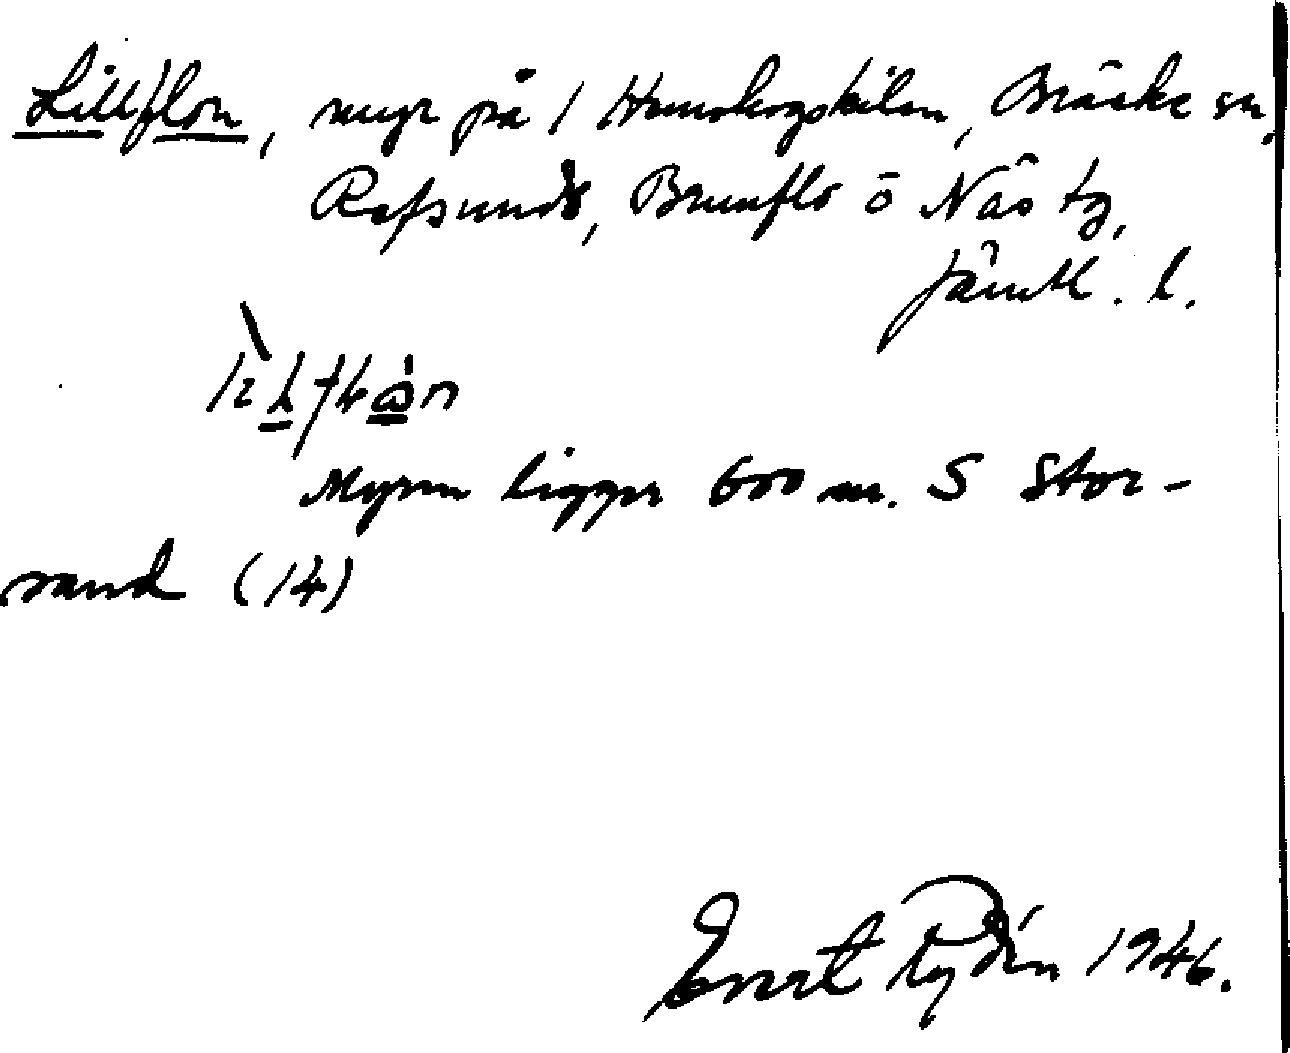 Lillflon, myr på 1 Hemskogskilen, Bräcke sn,
Refsunds, Brunflo o Näs tg,
Jämtl. l.
Myren ligger 600 m. S Stor-
sand (14)
Evert Rydén 1946.